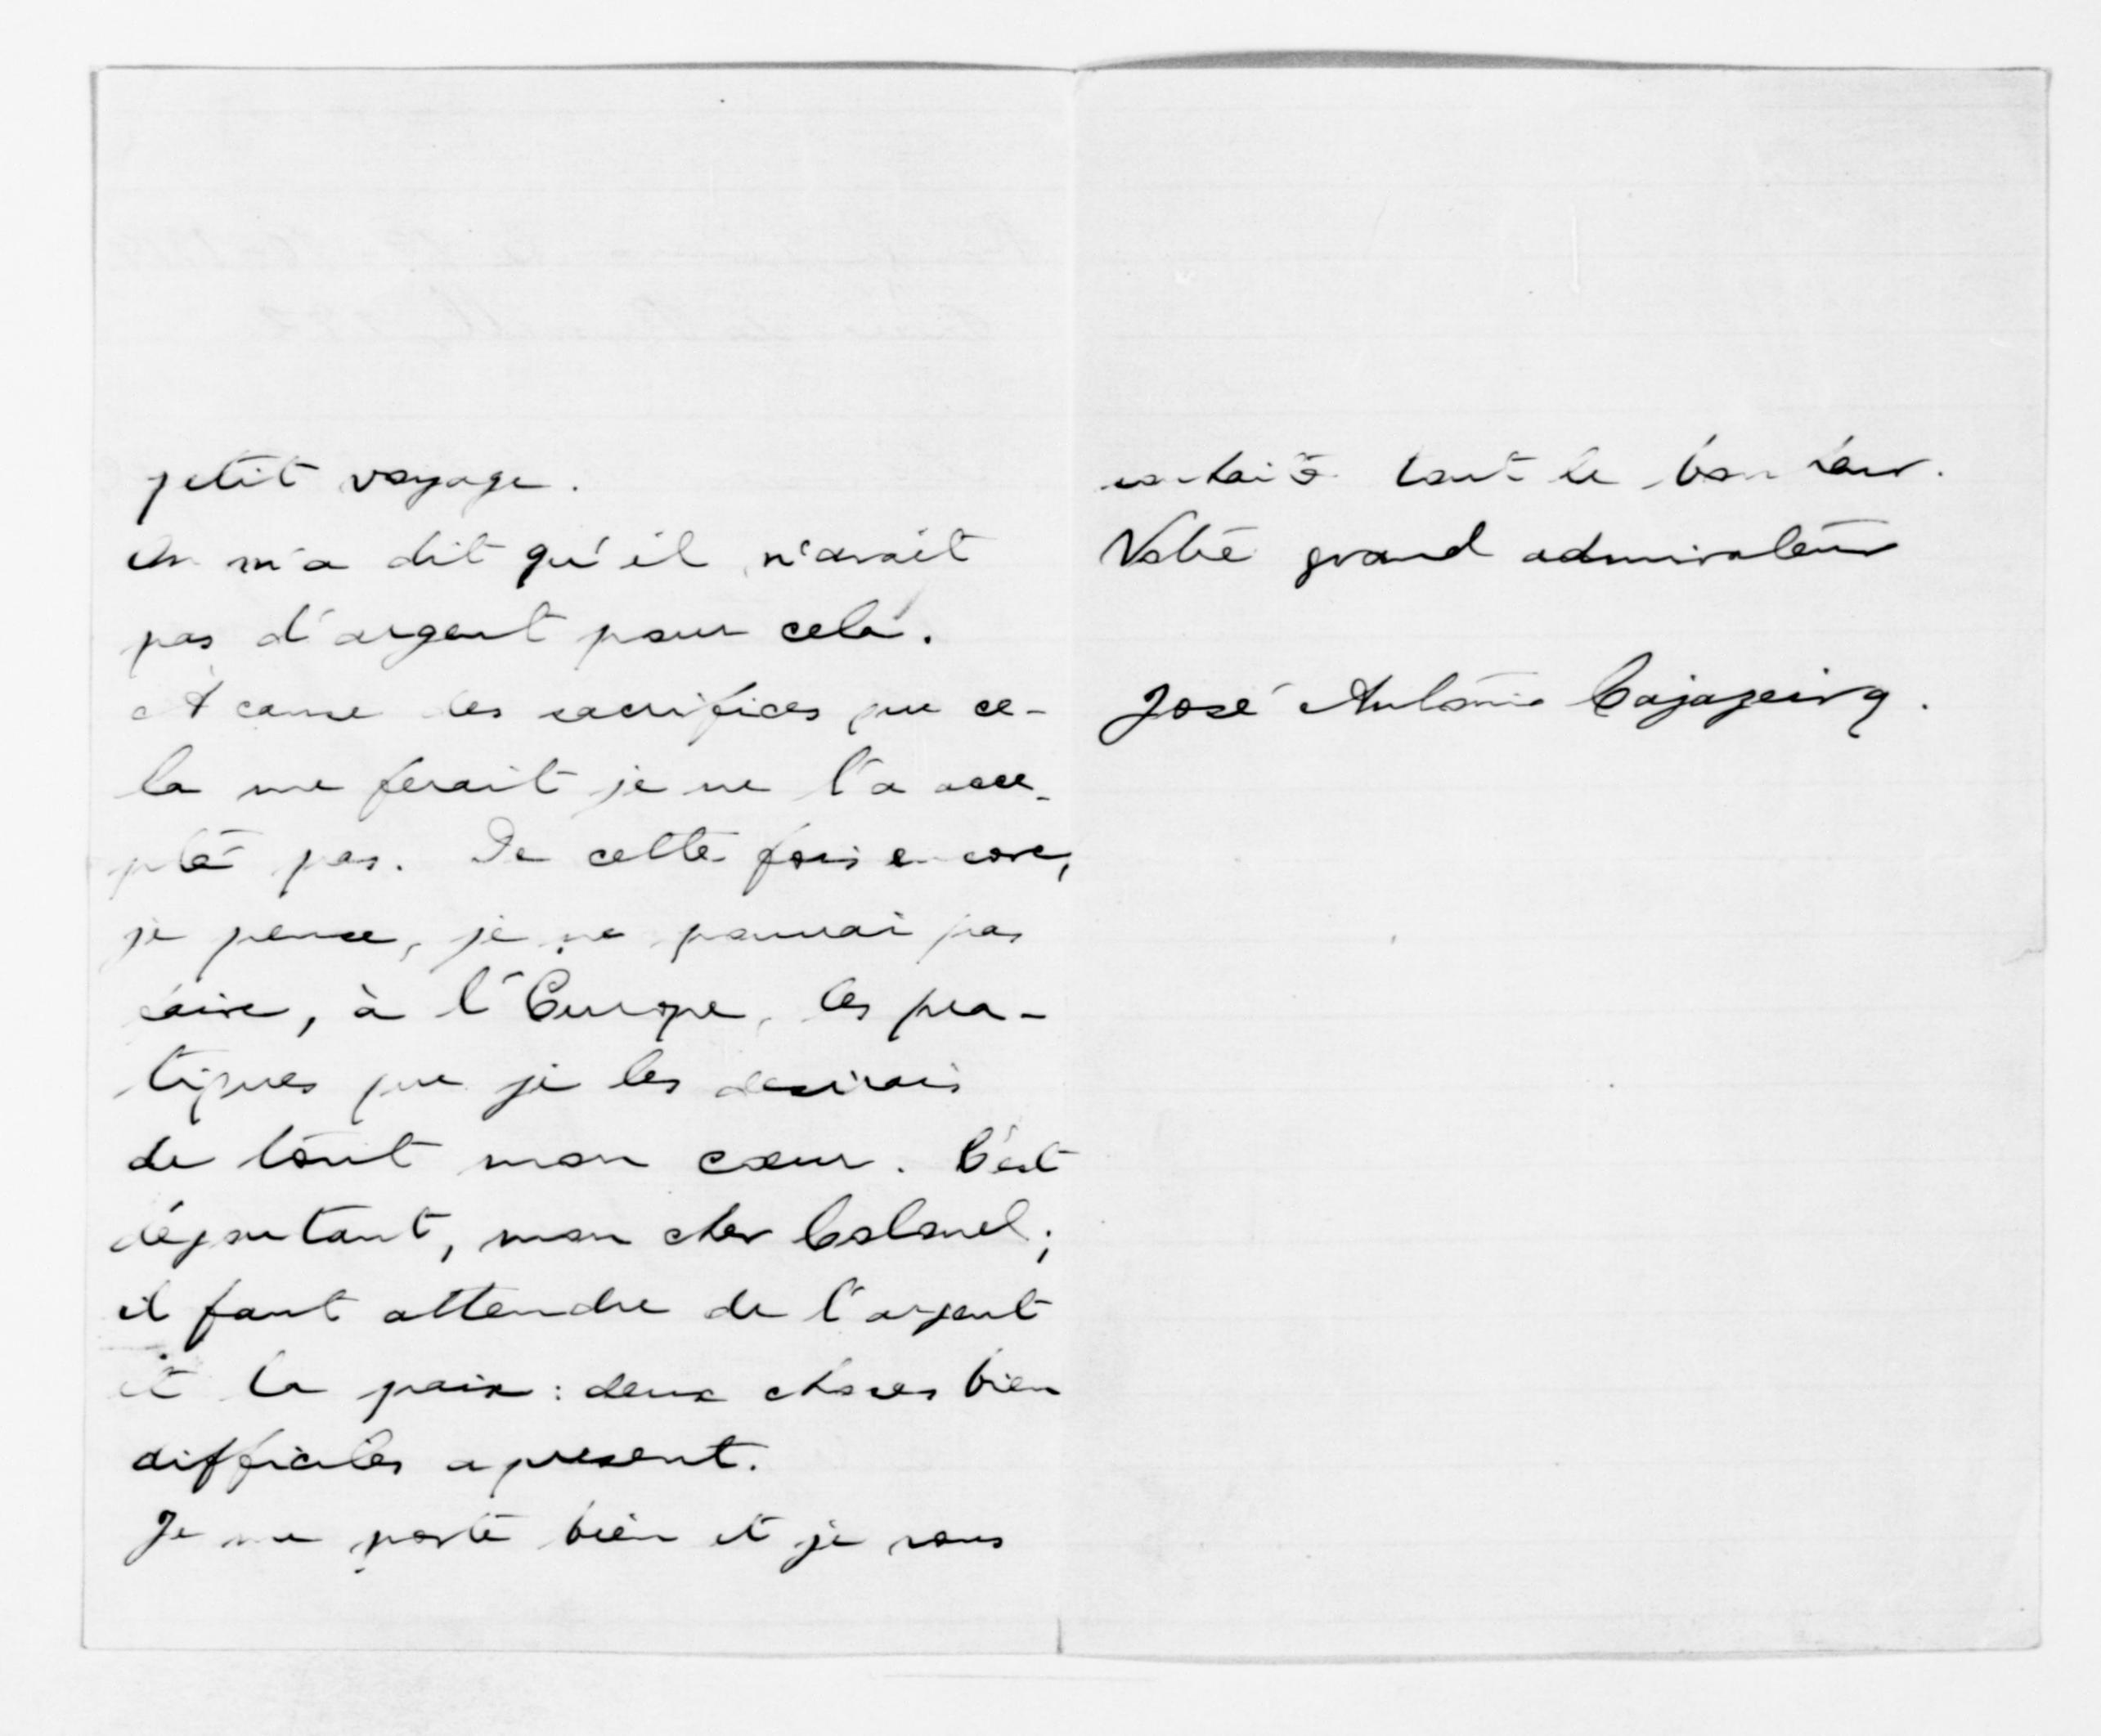 petit voyage.
On m'a dit qu'il n'avait
pas d'argent pour cela.
A cause des sacrifices que ce-
la me ferait je ne l'a acce-
pté pas. De cette fois encore,
je pense, je ne pourrai pas
faire, à l'Europe, les pra-
tiques que je les desirais
de tout mon cœur. C'est
dégoutant, mon cher Colonel;
il faut attendre de l'argent
et la paix: deux choses bien
difficiles a present.
Je me porte bien et je vous
souhaite tout le bonheur.
Votre grand admirateur
José Antonio Cajazeira.